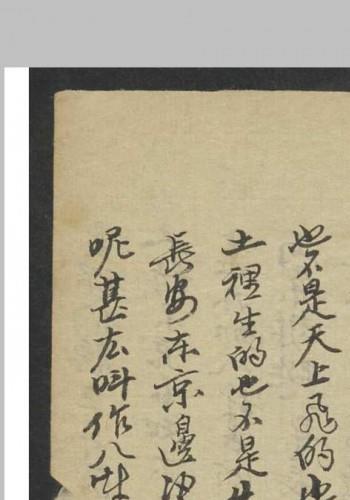 也不是天上飛的也
土裡生的也不是
長安东京邊
呢甚庅呌作八